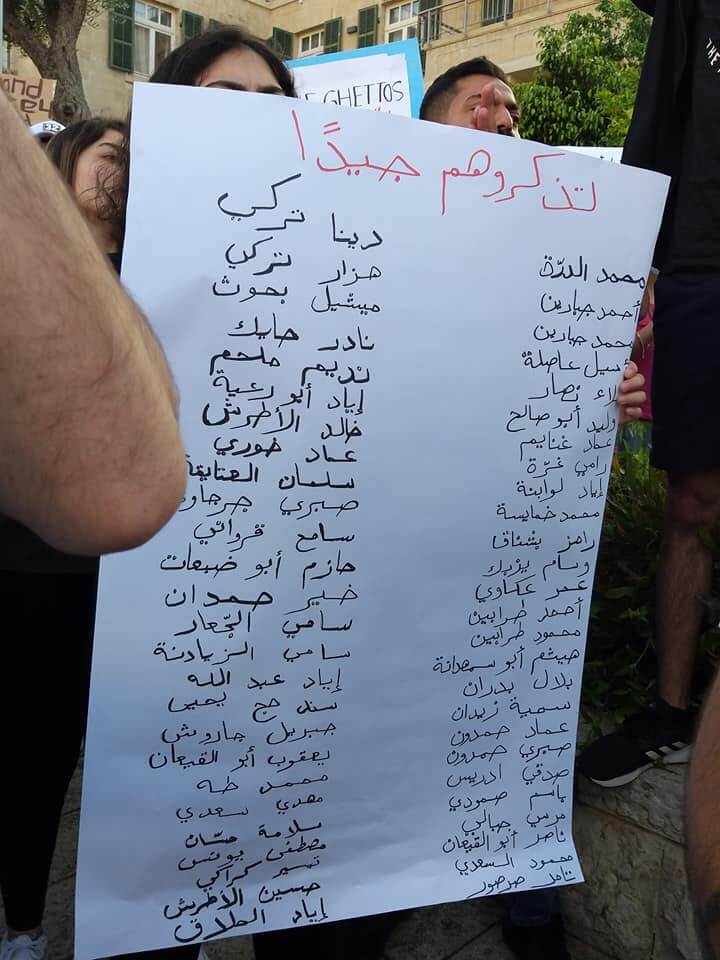 GHETTOS
THE
32
لتذكروهم جيدًا
محمد الدرّة
أحمد جبارين
محمد جبارين
أسيل عاصلة
علاء نصار
وليد أبو صالح
عماد غنايم
رامي غرّة
إياد لوابنة
محمد خمايسة
رامز بشناق
وسام يزبك
عمر عكاوي
أحمد
محمود
هيثم أبو
بلال بدران
سمية زيدان
عماد حمدون
صبري حمدون
صدقي ادريس
باسم صمودي
مرسي جبالي
ناصر أبو القيعان
محمود السعدي
تامر صرصور
دينا تركي
هزار تركي
ميشيل بحوث
نادر حايك
نديم ملحم
إياد أبو رعية
خالد الأطرش
عماد خوري
سلمان العتايقة
صبري
سامح
حازم أبو ضبعات
خير حمدان
سامي الجعار
سامي الزيادنة
إياد عبد الله
سند حج يحيى
جبريل جاروش
يعقوب أبو القيعان
محمد طه
مهدي سعدي
سلامة
مصطفى يونس
تيسير كراكي
حسين الأطرش
إياد الحلاق